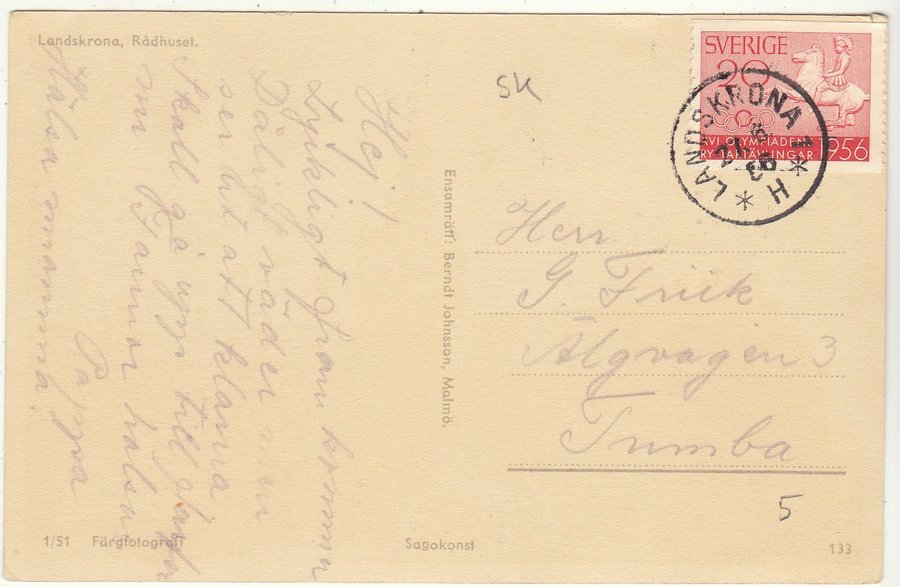 Landskrona, Rådhuset.
SK
SVERIGE
20
XVI OLYMPIADENS
RYTTARTÄVLINGAR 1956
LANDSKRONA 1
H
Hej!
Lyckligt fram kommen
Dåligt väder men
ser ut att klarna
skall gå upp till
nu hälsar
Pappa
Hälsa mamma.
Ensamrätt: Berndt Johnsson, Malmö.
Herr
G. Frük
Älgvägen 3
Tumba
5
1/51 Färgfotografi
Sagokonst
133